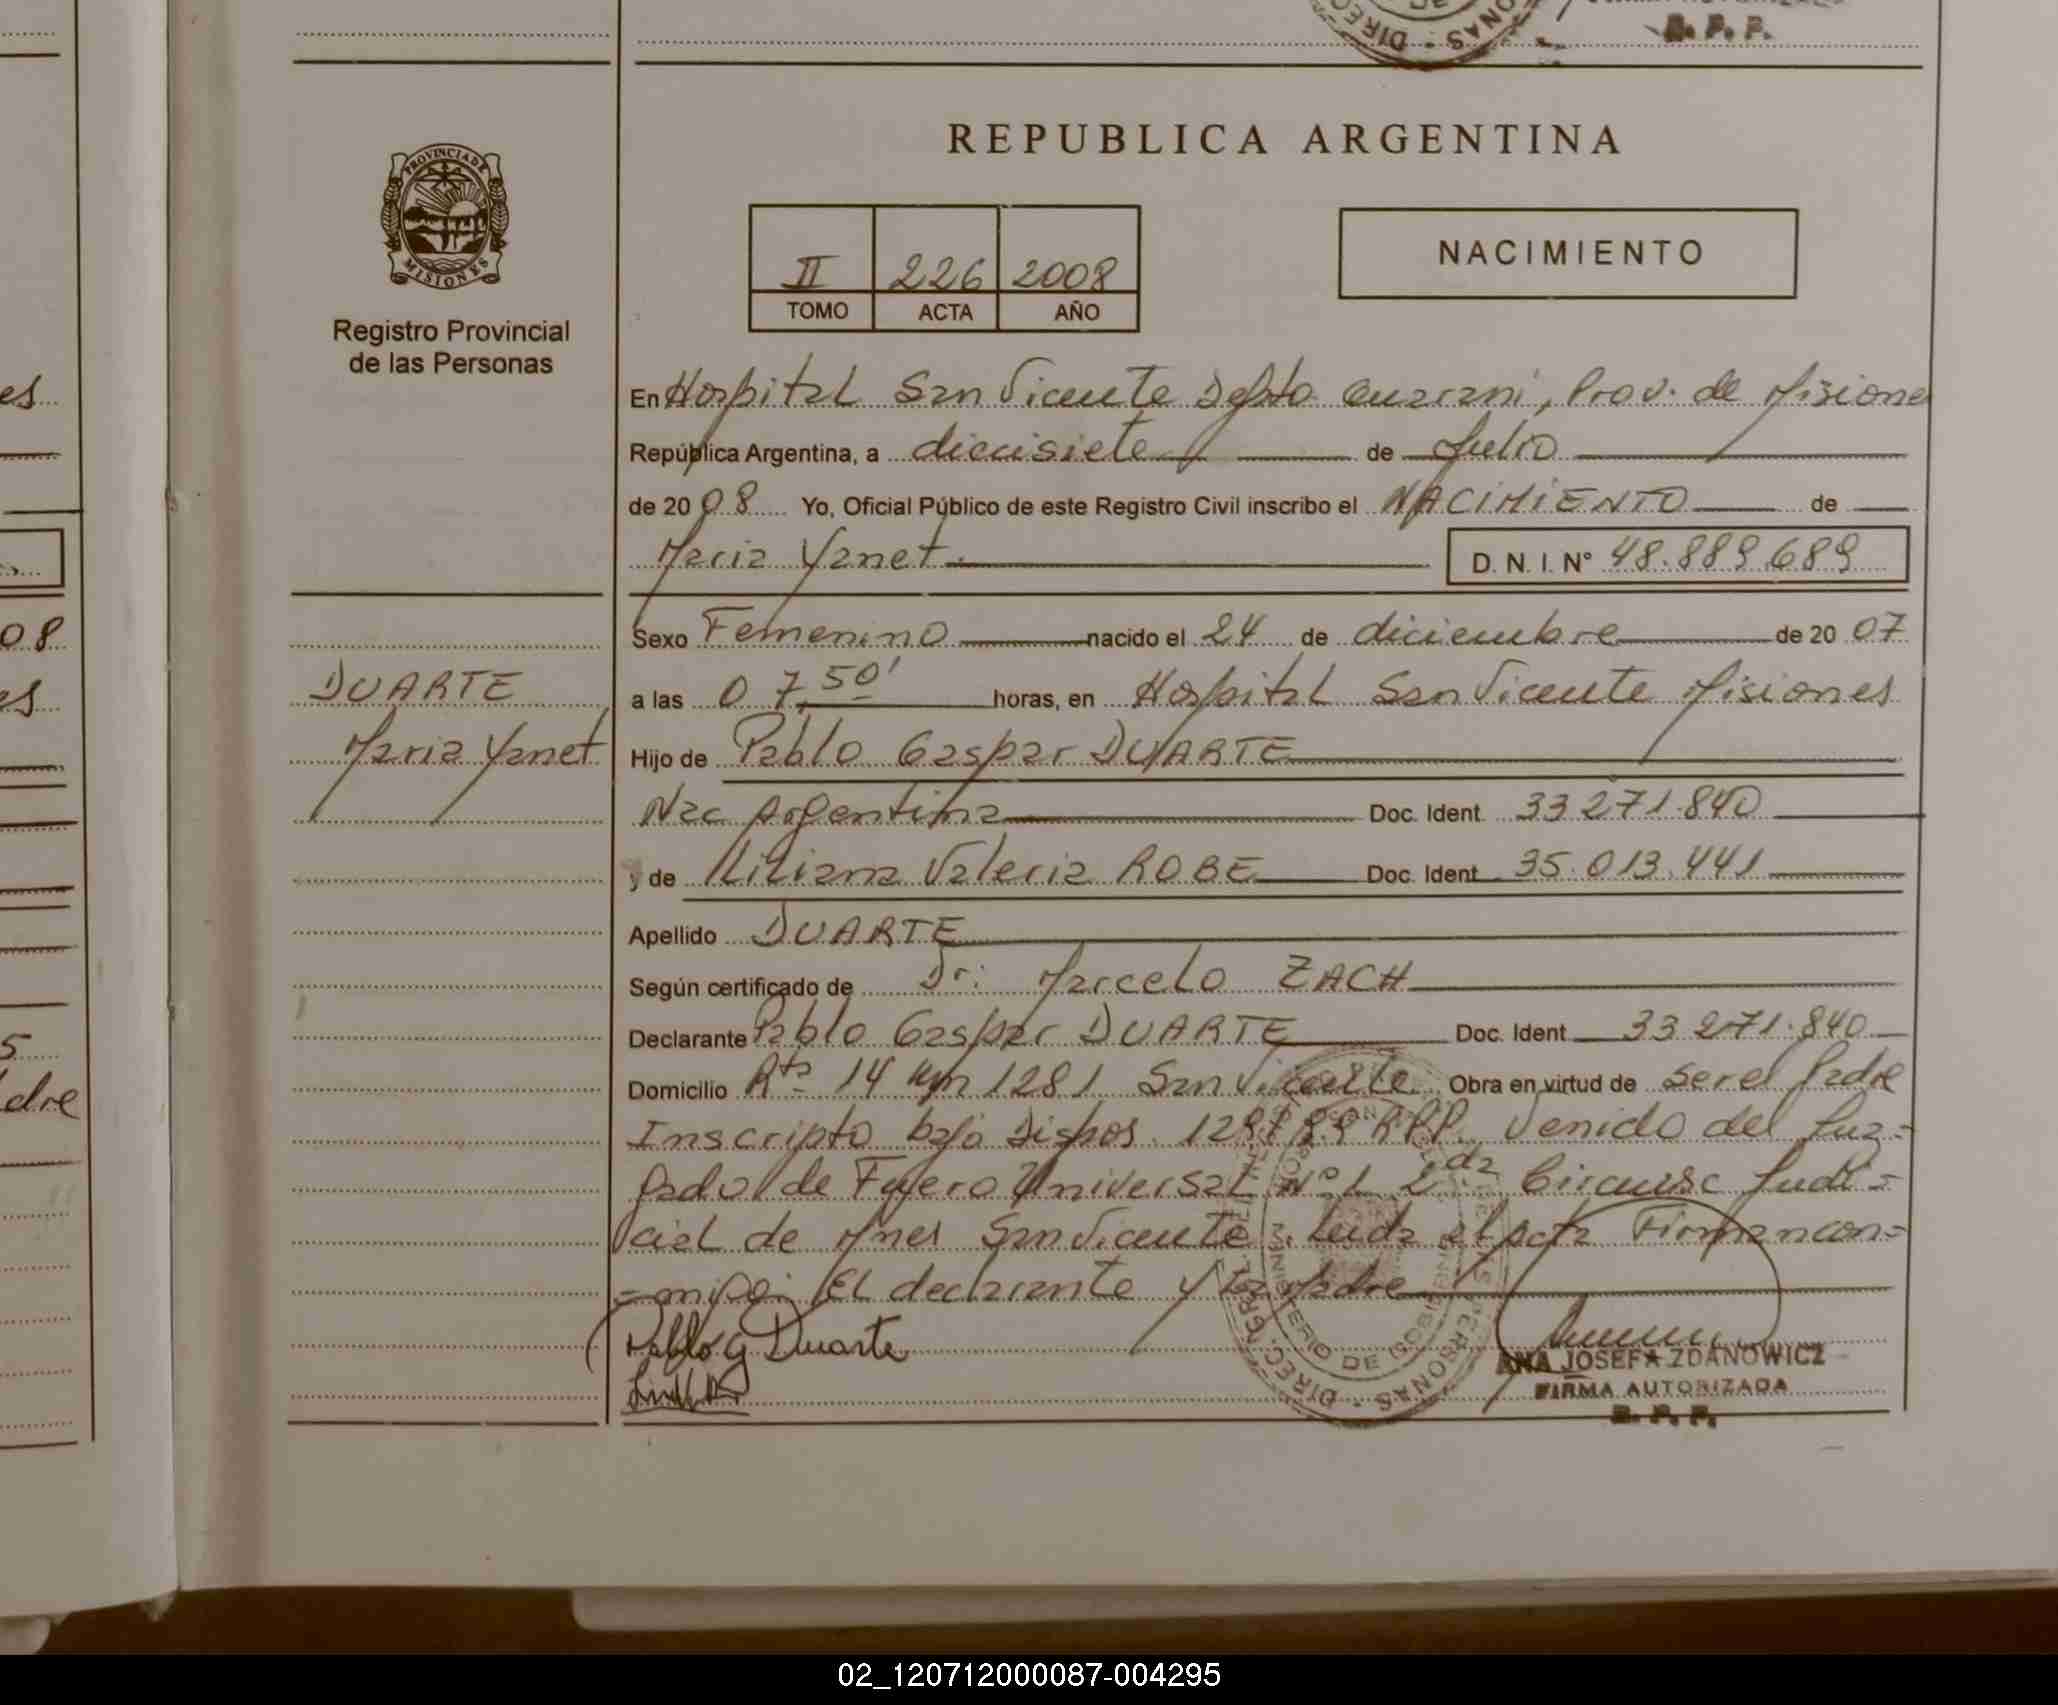 REPUBLICA ARGENTINA
PROVINCIA DE
MISIONES
Registro Provincial
de las Personas
II 226 2008
TOMO ACTA AÑO
NACIMIENTO
En Hospital San Vicente Depto Guarani, Prov. de Misiones
República Argentina, a diecisiete de Julio
de 2008 Yo, Oficial Público de este Registro Civil inscribo el NACIMIENTO de
Maria Yanet D.N.I. Nº 48.889.689
Sexo Femenino nacido el 24 de diciembre de 2007
DUARTE
Maria Yanet
a las 07,50' horas, en Hospital San Vicente Misiones
Hijo de Pablo Gaspar DUARTE
Nac Argentina Doc. Ident. 33 271.840
y de Liliana Valeria ROBE Doc. Ident. 35.013.441
Apellido DUARTE
Según certificado de Dr: Marcelo ZACH
Declarante Pablo Gaspar DUARTE Doc. Ident 33 271.840
Domicilio Rta 14 km 1281 San Vicente Obra en virtud de ser el Padre
Inscripto bajo Dispos. RPP. Venido del Juz-
gado de Fuero Universal Nº 1 2da Circunsc Judi-
cial de Mnes San Vicente. Leida el acta Firman con-
=migo: El declarante y la Madre
Pablo G Duarte
ANA JOSEFA ZDANOWICZ
FIRMA AUTORIZADA
R. P. P.
02_120712000087-004295